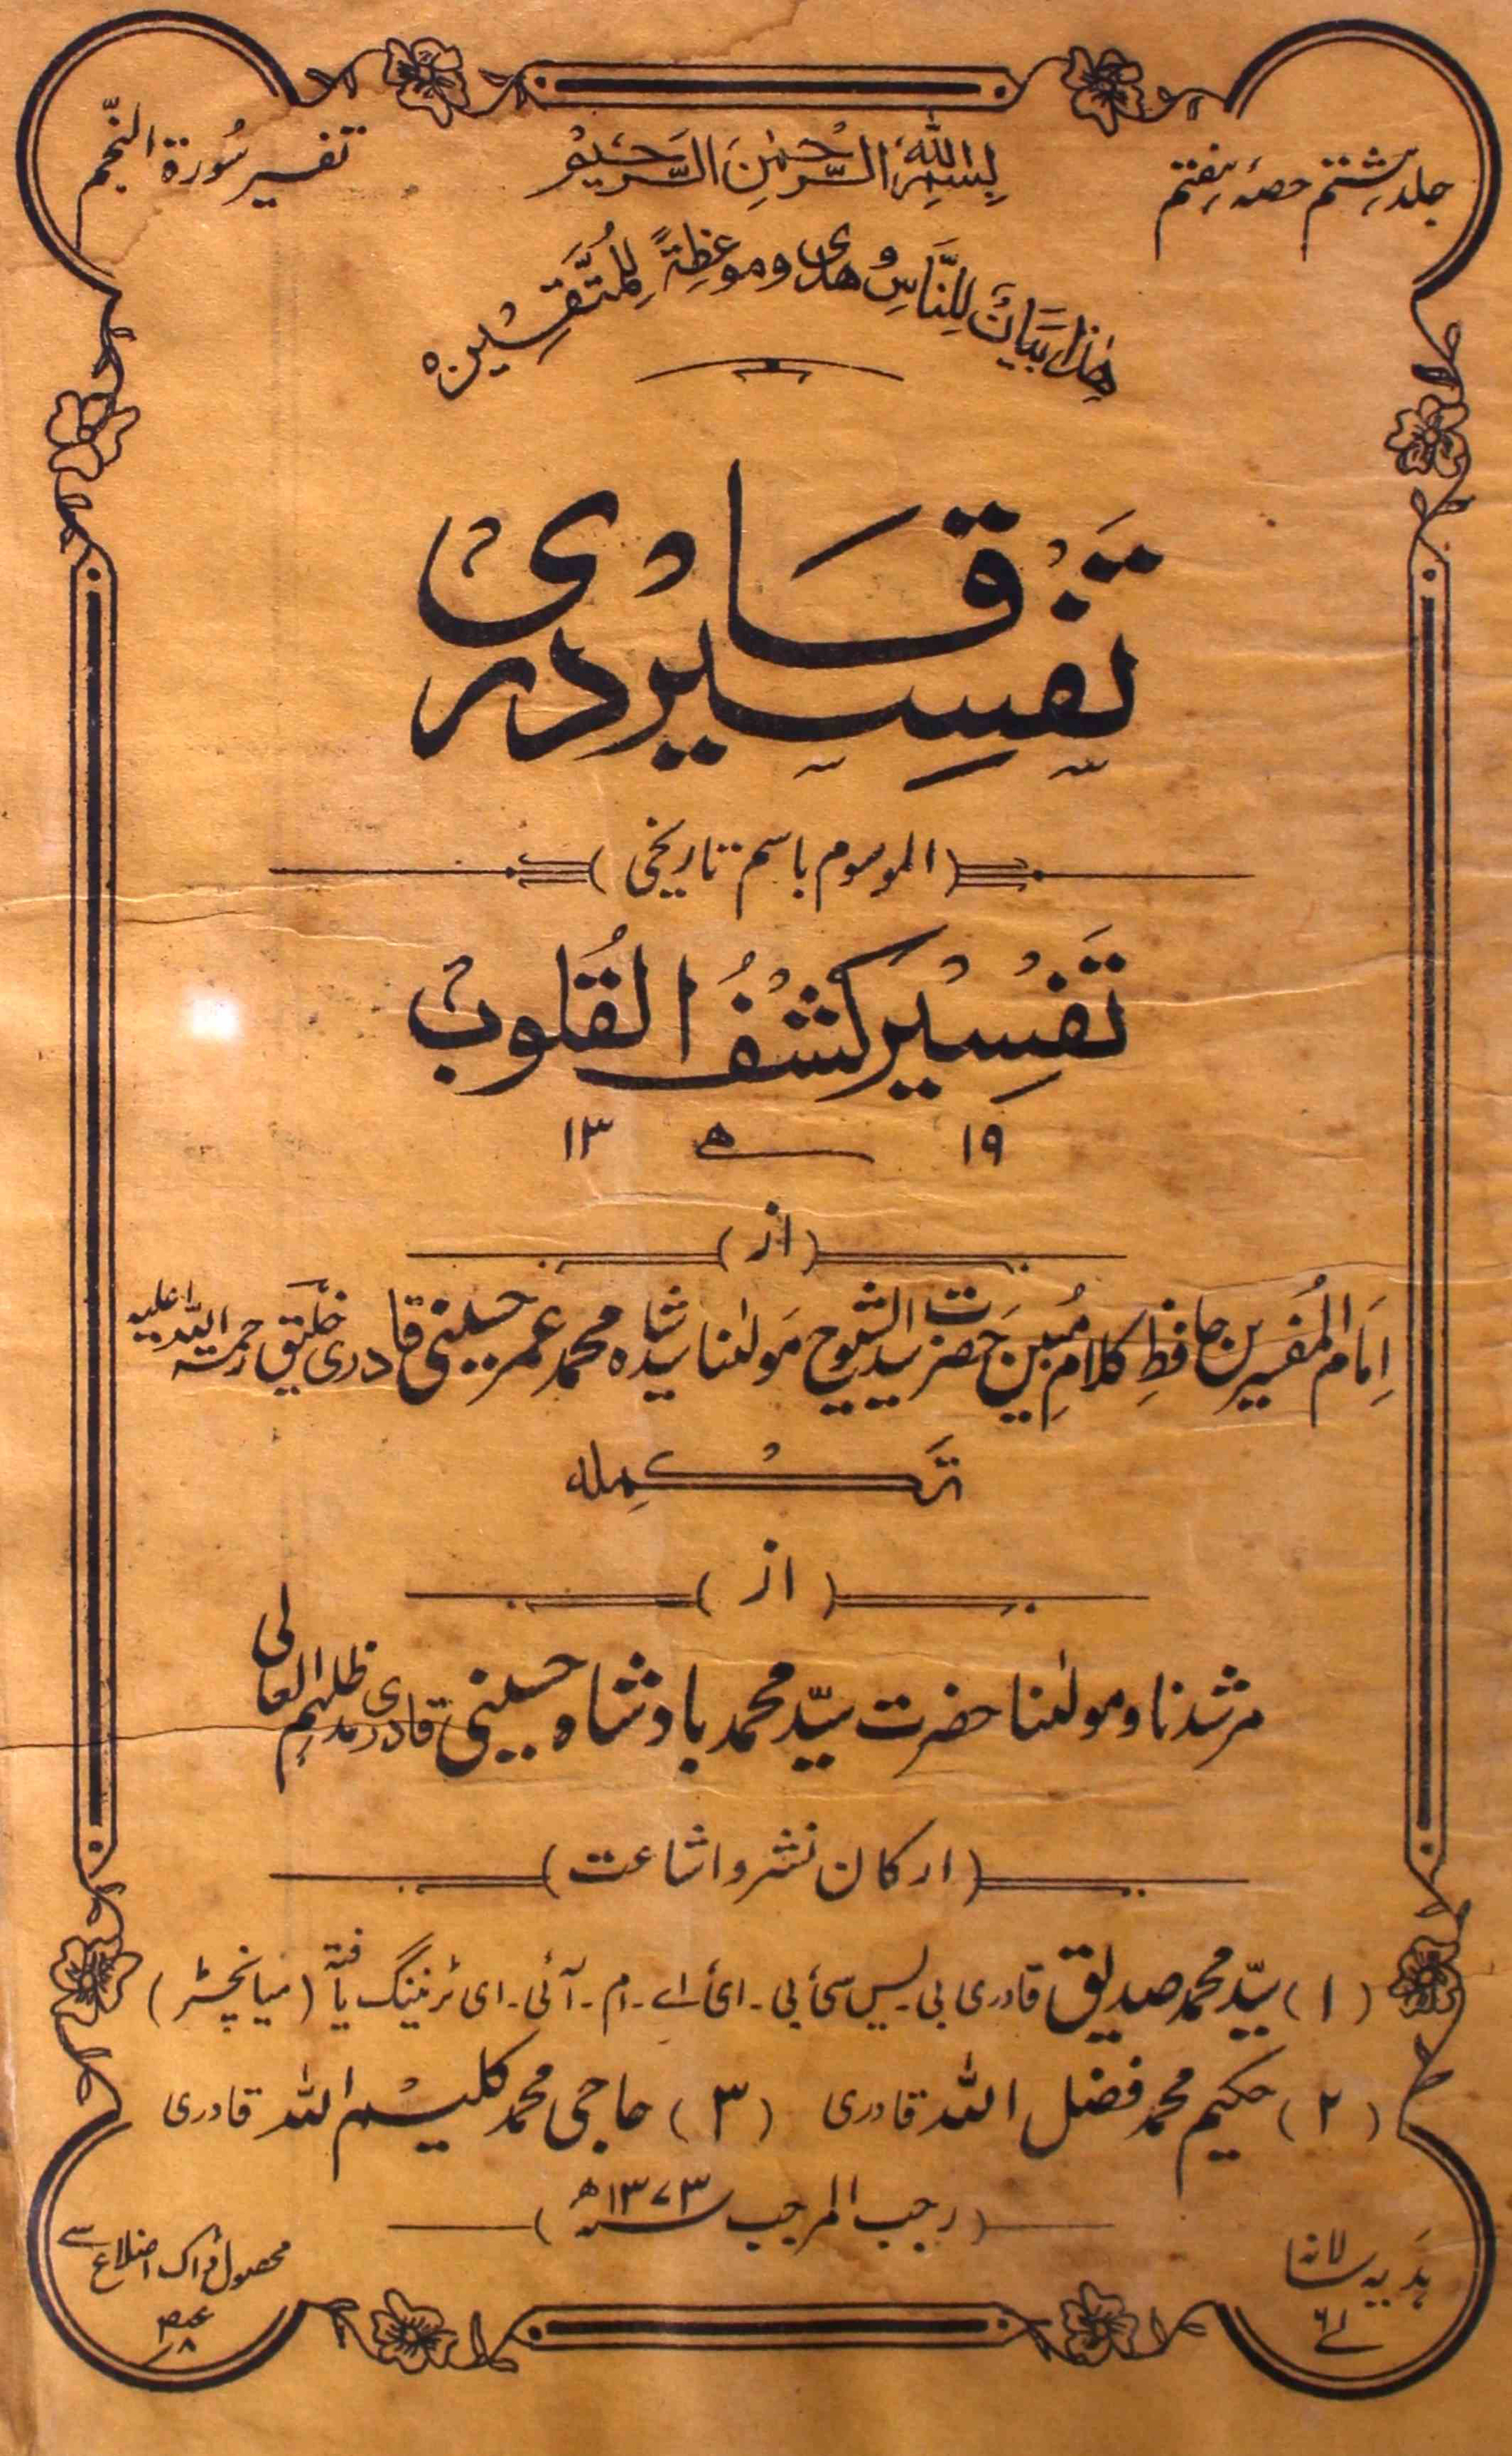 جلد ہشتم حصۂ ہفتم
بِسْمِ اللّٰہِ الرَّحْمٰنِ الرَّحِیْمِ
تفسیر سُورۃ النّجم
ھٰذَا بَیَانٌ لِّلنَّاسِ وَھُدًی وَّمَوْعِظَۃٌ لِّلْمُتَّقِیْنَ ہ
تَفْسِیْرِ قَادْرِیْ
(الموسوم باسم تاریخی)
تَفْسِیْر کَشْفُ الْقُلُوبْ
۱۳ ھ ۱۹
(از)
اِمَامُ الْمُفسِّرین حافظِ کلامِ مُبین حَضرت سیدالشیوخ مَولٰنا سیّد شاہ محمد عمر حسینی قادری خلیق رحمۃ اللہ علیہ
تَکْمِلہ
(از)
مرشدنا و مولٰنا حضرت سیّد محمد بادشاہ حسینی قادری مدظلہم العالی
(ارکان نشر و اشاعت)
(۱) سیّد محمد صدیق قادری بی۔یس سی بی۔ای اے۔ام۔آئی۔ای ٹرینگ یافتہ (میانچسٹر)
(۲) حکیم محمد فضل اللہ قادری (۳) حاجی محمد کلیم اللہ قادری
(رجب المرجب سنہ ۱۳۷۳ھ)
ہَدیہ سالانہ
محصول ڈاک اضلاع سے